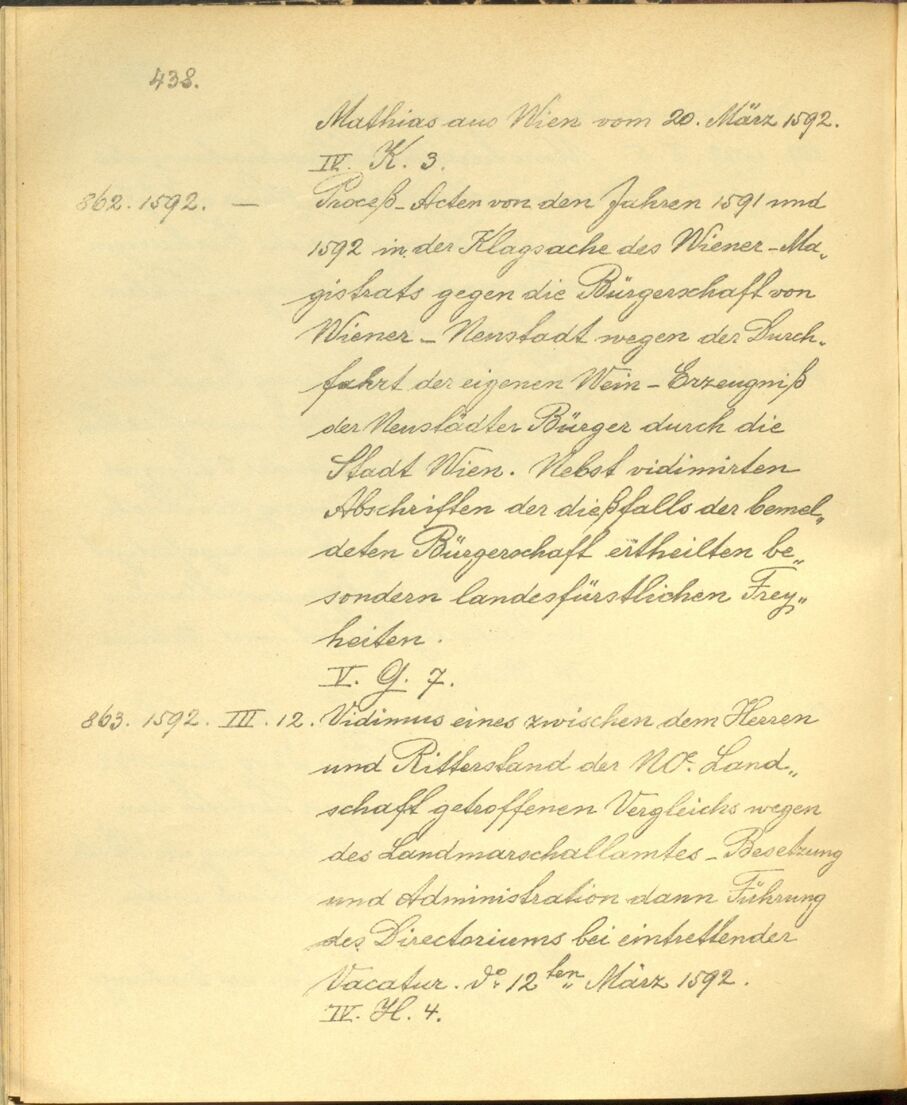 438.
Mathias aus Wien vom 20. März 1592.
IV. K. 3.
862. 1592. — Proceß-Acten von den Jahren 1591 und
1592 in der Klagsache des Wiener-Ma„
gistrats gegen die Bürgerschaft von
Wiener-Neustadt wegen der Durch„
fahrt der eigenen Wein-Erzeugniß
der Neustädter Bürger durch die
Stadt Wien. Nebst vidimirten
Abschriften der dießfalls der bemel„
deten Bürgerschaft ertheilten be„
sondern landesfürstlichen Frey„
heiten.
V. G. 7.
863. 1592. III. 12. Vidimus eines zwischen dem Herren
und Ritterstand der NÖ. Land„
schaft getroffenen Vergleichs wegen
des Landmarschallamtes-Besetzung
und Administration dann Führung
des Directoriums bei eintrettender
Vacatur. do 12ten März 1592.
IV. H. 4.